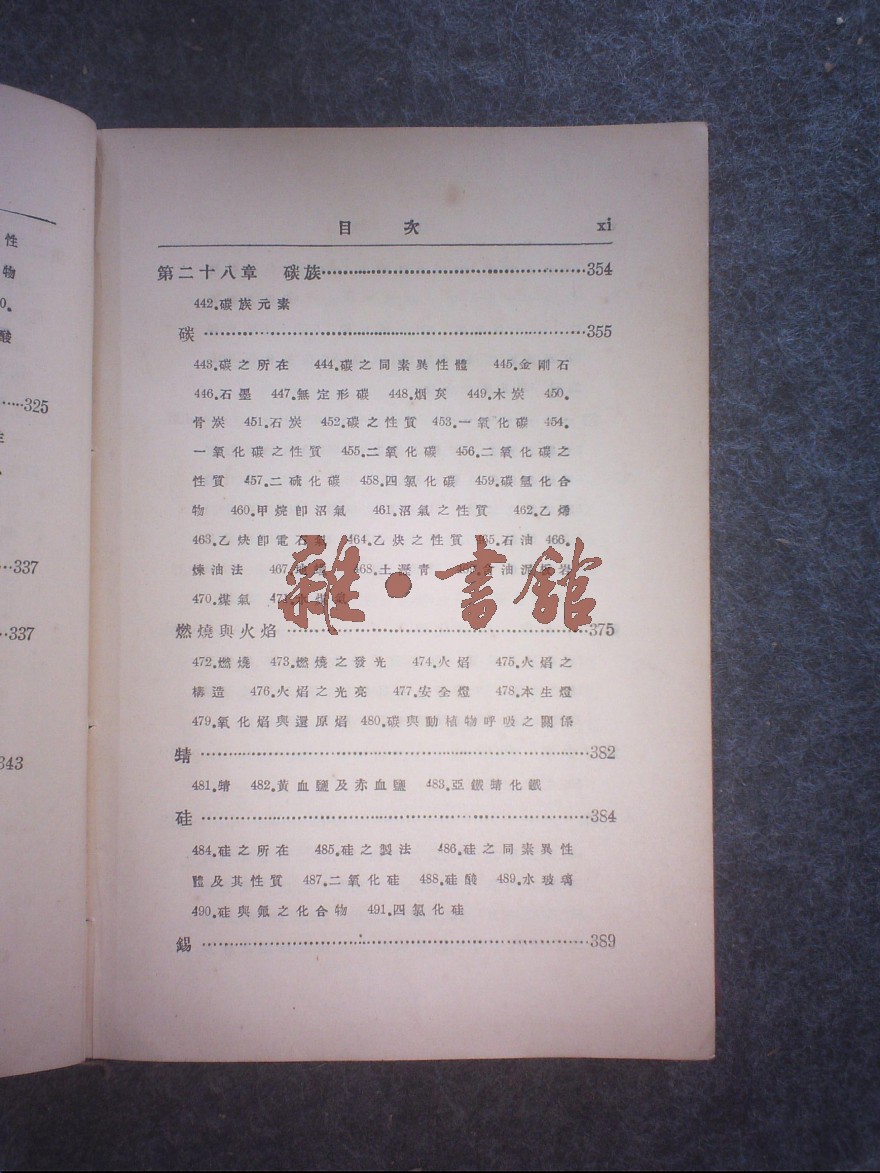 性
物
0.
酸
……325
…337
…337
343
目 次 xi
第二十八章 碳族……354
442.碳族元素
碳……355
443.碳之所在 444.碳之同素異性體 445.金剛石
446.石墨 447.無定形碳 448.烟炱 449.木炭 450.
骨炭 451.石炭 452.碳之性質 453.一氧化碳 454.
一氧化碳之性質 455.二氧化碳 456.二氧化碳之
性質 457.二硫化碳 458.四氯化碳 459.碳氫化合
物 460.甲烷卽沼氣 461.沼氣之性質 462.乙烯
463.乙炔卽電石氣 464.乙炔之性質 465.石油 466.
煉油法 467. 468.土瀝青 油泥板岩
470.煤氣 471.水煤氣
雜·書館
燃燒與火焰……375
472.燃燒 473.燃燒之發光 474.火焰 475.火焰之
構造 476.火焰之光亮 477.安全燈 478.本生燈
479.氧化焰與還原焰 480.碳與動植物呼吸之關係
蜻……382
481. 482.黃血鹽及赤血鹽 483.亞鐵 化鐵
硅……384
484.硅之所在 485.硅之製法 486.硅之同素異性
體及其性質 487.二氧化硅 488.硅酸 489.水玻璃
490.硅與氟之化合物 491.四氯化硅
錫……389